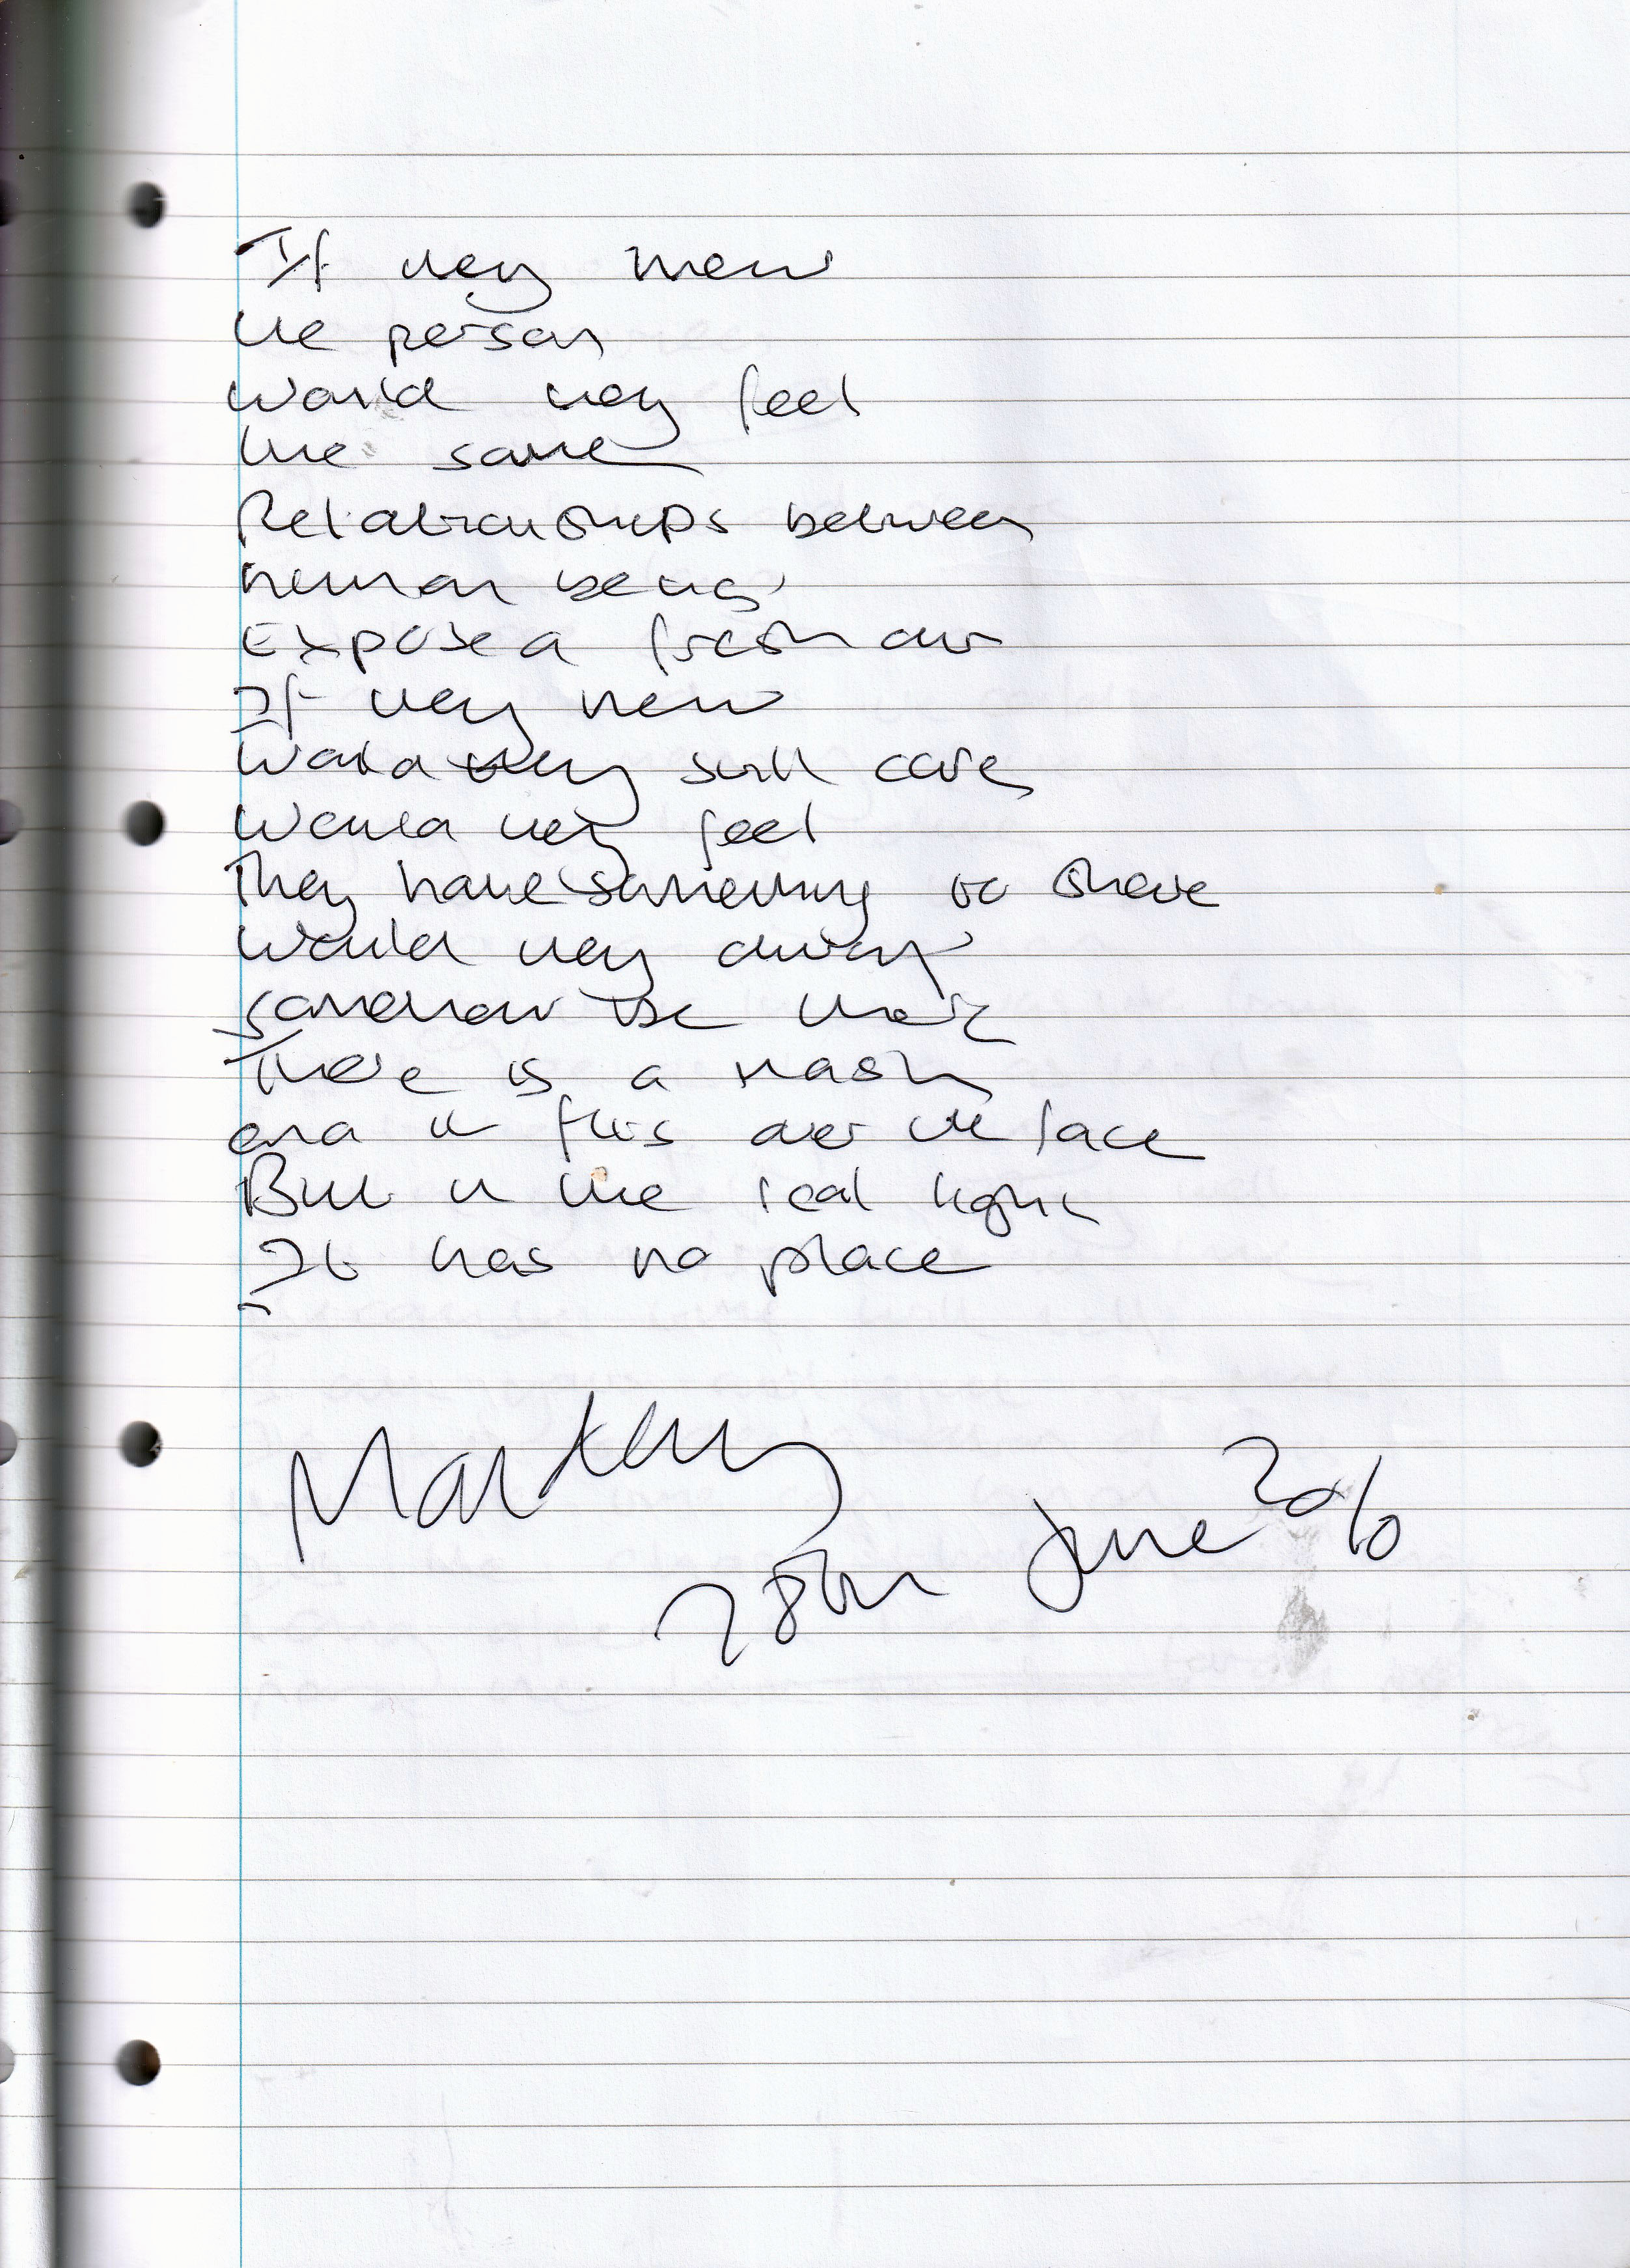 If they knew
the person
Would they feel
the same
Relationships between
human beings
Expose a fresh air
If they knew
Would they still care
Would they feel
They have something to share
Would they always
Somehow be there
There is a mask
and it fits over the face
But in the real light
It has no place
28th June 2010